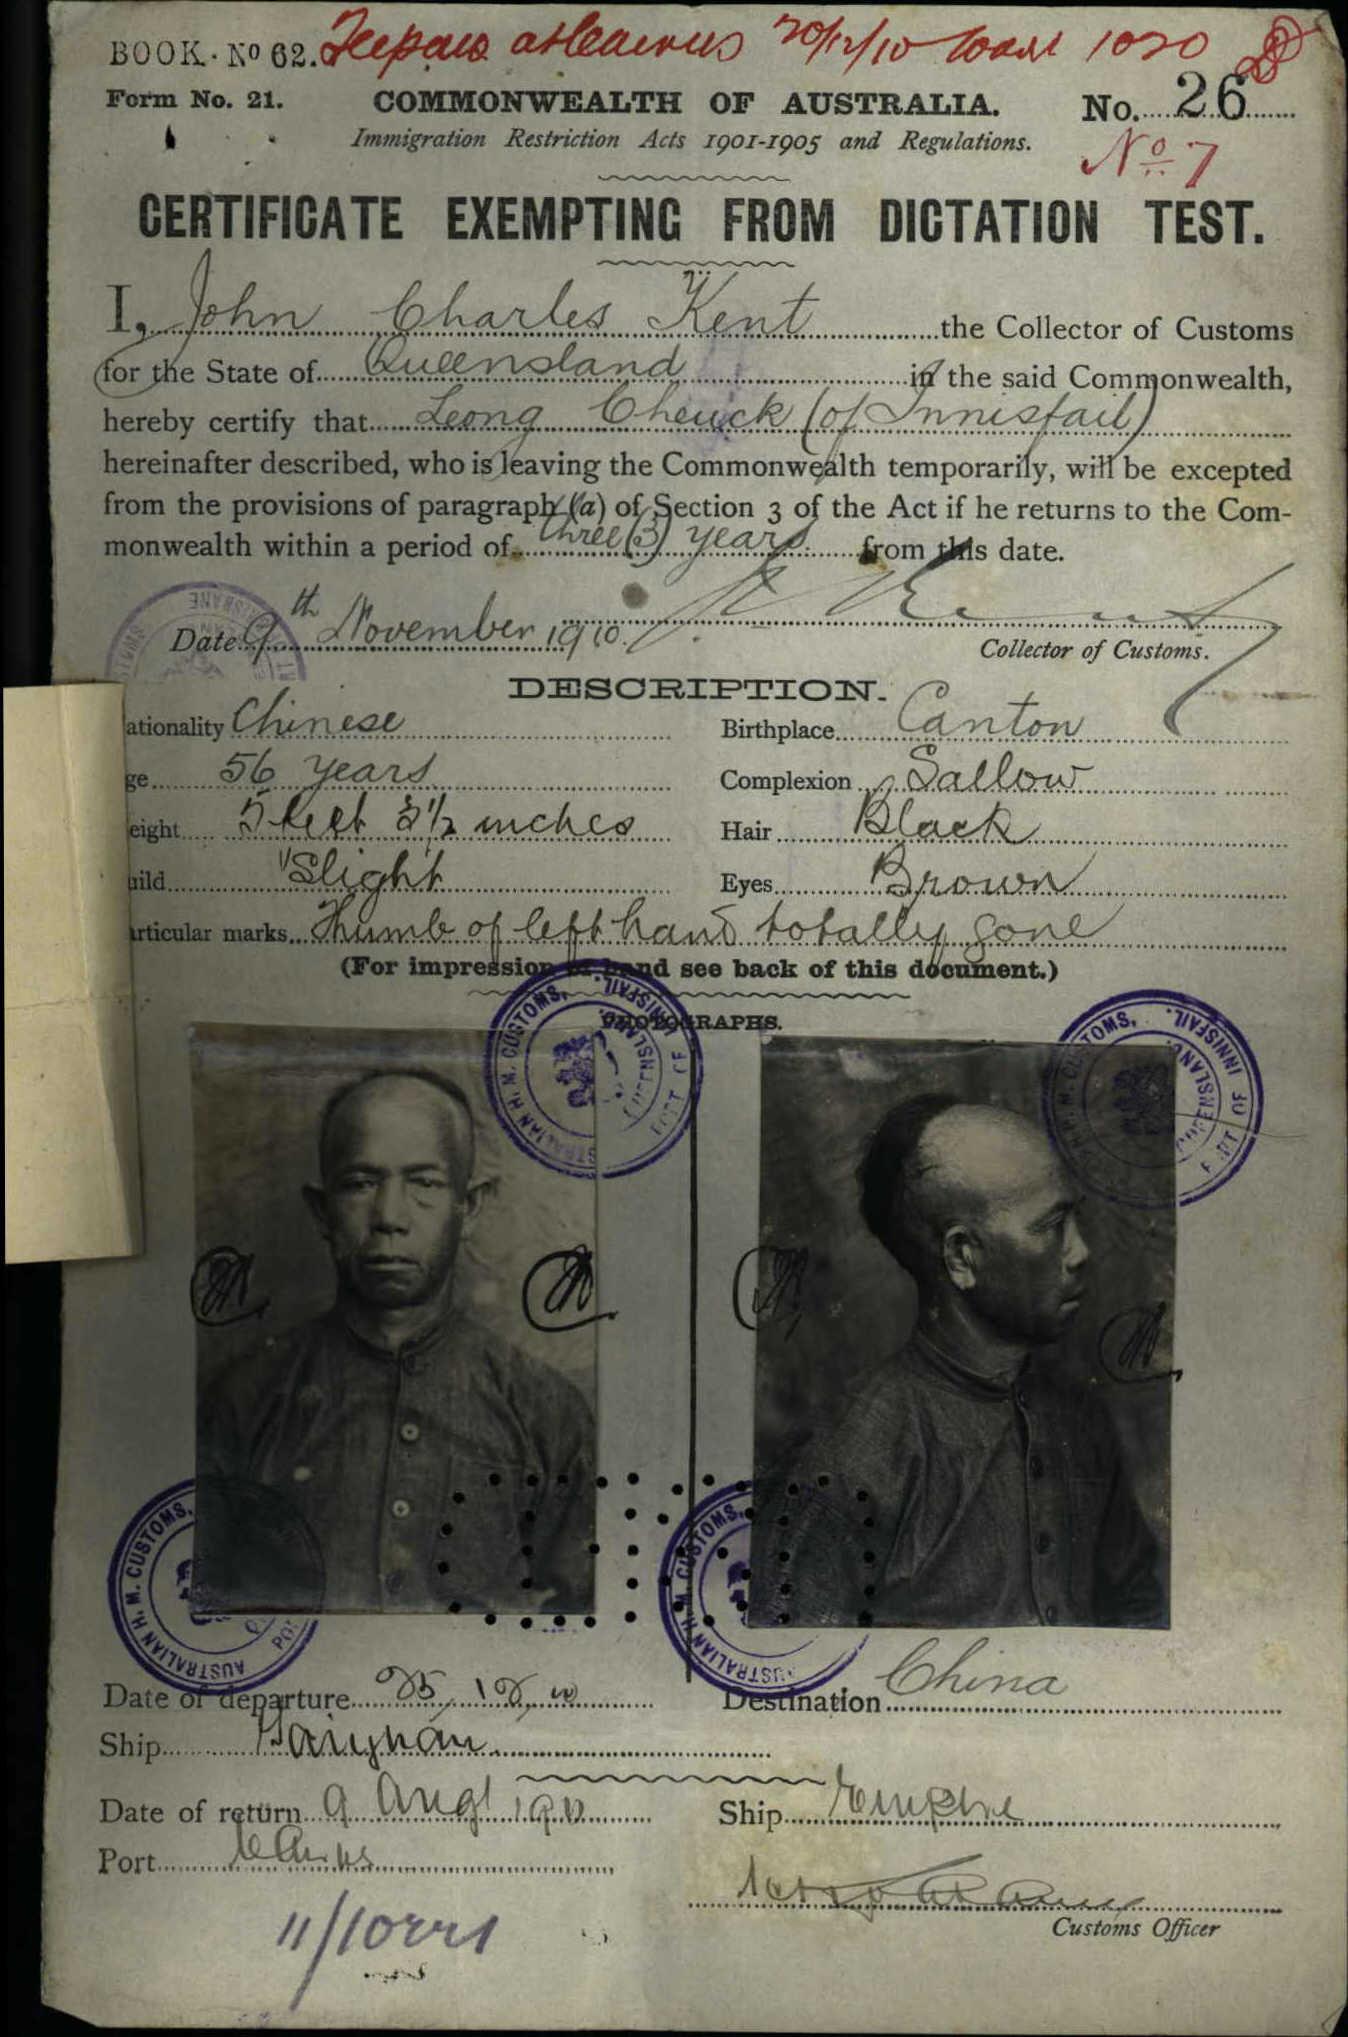 BOOK. No 62. 20/12/10 1020
Form No. 21. COMMONWEALTH OF AUSTRALIA. No. 26
Immigration Restriction Acts 1901-1905 and Regulations. No 7
CERTIFICATE EXEMPTING FROM DICTATION TEST.
I, John Charles Kent the Collector of Customs
for the State of Queensland in the said Commonwealth,
hereby certify that Leong Cheuck (of Innisfail)
hereinafter described, who is leaving the Commonwealth temporarily, will be excepted
from the provisions of paragraph (a) of Section 3 of the Act if he returns to the Com-
monwealth within a period of three (3) years from this date.
Date 9th November 1910.
Collector of Customs.
DESCRIPTION.
ationality Chinese Birthplace Canton
ge 56 years Complexion Sallow
eight 5 feet 3½ inches Hair Black
uild Slight Eyes Brown
articular marks Thumb of left hand totally gone
(For impression of hand see back of this document.)
PHOTOGRAPHS.
AUSTRALIAN H. M. CUSTOMS, PORT OF INNISFAIL. QUEENSLAND.
H. M. CUSTOMS, PORT OF INNISFAIL. QUEENSLAND.
AUSTRALIAN H. M. CUSTOMS,
AUSTRALIAN H. M. CUSTOMS,
Date of departure 25, 12, 10 Destination China
Ship Taiyuan
Date of return 9 Augt 1911 Ship Empire
Port Cairns
Customs Officer